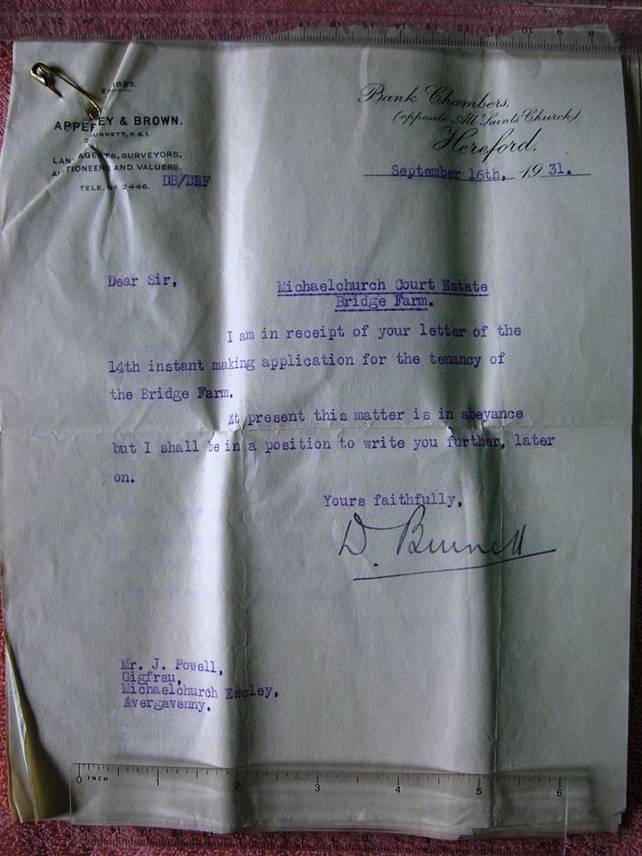 1887.
APPERLEY & BROWN.
BURNETT, F.S.I.
LAND AGENTS, SURVEYORS,
AUCTIONEERS AND VALUERS.
TELE. No 2446.
DB/DEF
Bank Chambers,
(opposite All Saints Church)
Hereford,
September 16th, 1931.
Dear Sir,
Michaelchurch Court Estate
Bridge Farm.
I am in receipt of your letter of the
14th instant making application for the tenancy of
the Bridge Farm.
At present this matter is in abeyance
but I shall be in a position to write you further, later
on.
Yours faithfully,
D. Burnett
Mr. J. Powell,
Gigfrau,
Michaelchurch Escley,
Avergavenny.
0 INCH 1 2 3 4 5 6